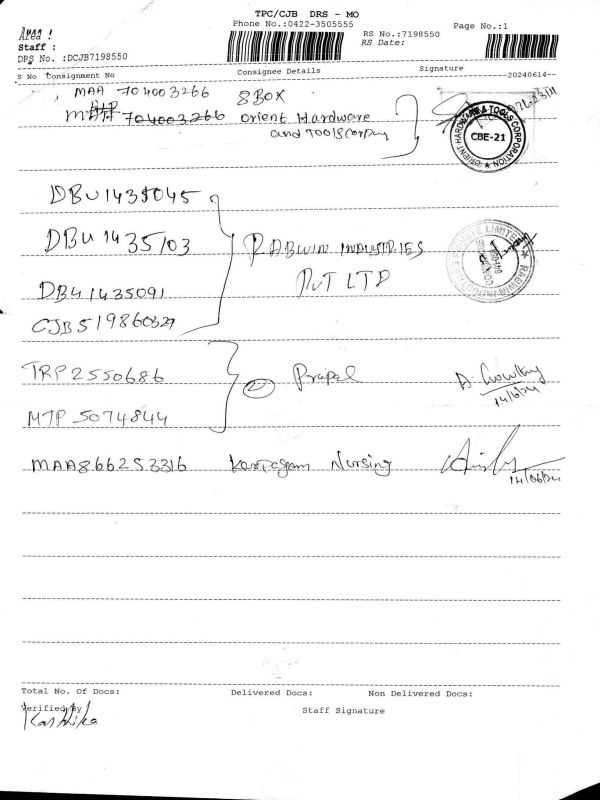 TPC/CJB DRS - MO
Phone No.:0422-3505555
Page No.:1
Area :
RS No.:7198550
Staff :
RS Date:
DRS No. :DCJB7198550
S No Consignment No Consignee Details Signature
--20240614--
MAA 704003266 8 BOX
MAA 704003266 Orient Hardware
and Tools Corpany
ORIENT HARDWARE & TOOLS CORPORATION
CBE-21
DBU1435045
DBU1435103 RABWIN INDUSTRIES
PVT LTD
DBU1435091
CJB519860329
TRP2550686 2 Prapal
A. Gowthy
14/6/24
MTP 5074844
MAA866253316 Karpagam Nursing
14/06/24
Total No. Of Docs: Delivered Docs: Non Delivered Docs:
Verified By
Staff Signature
Karthika